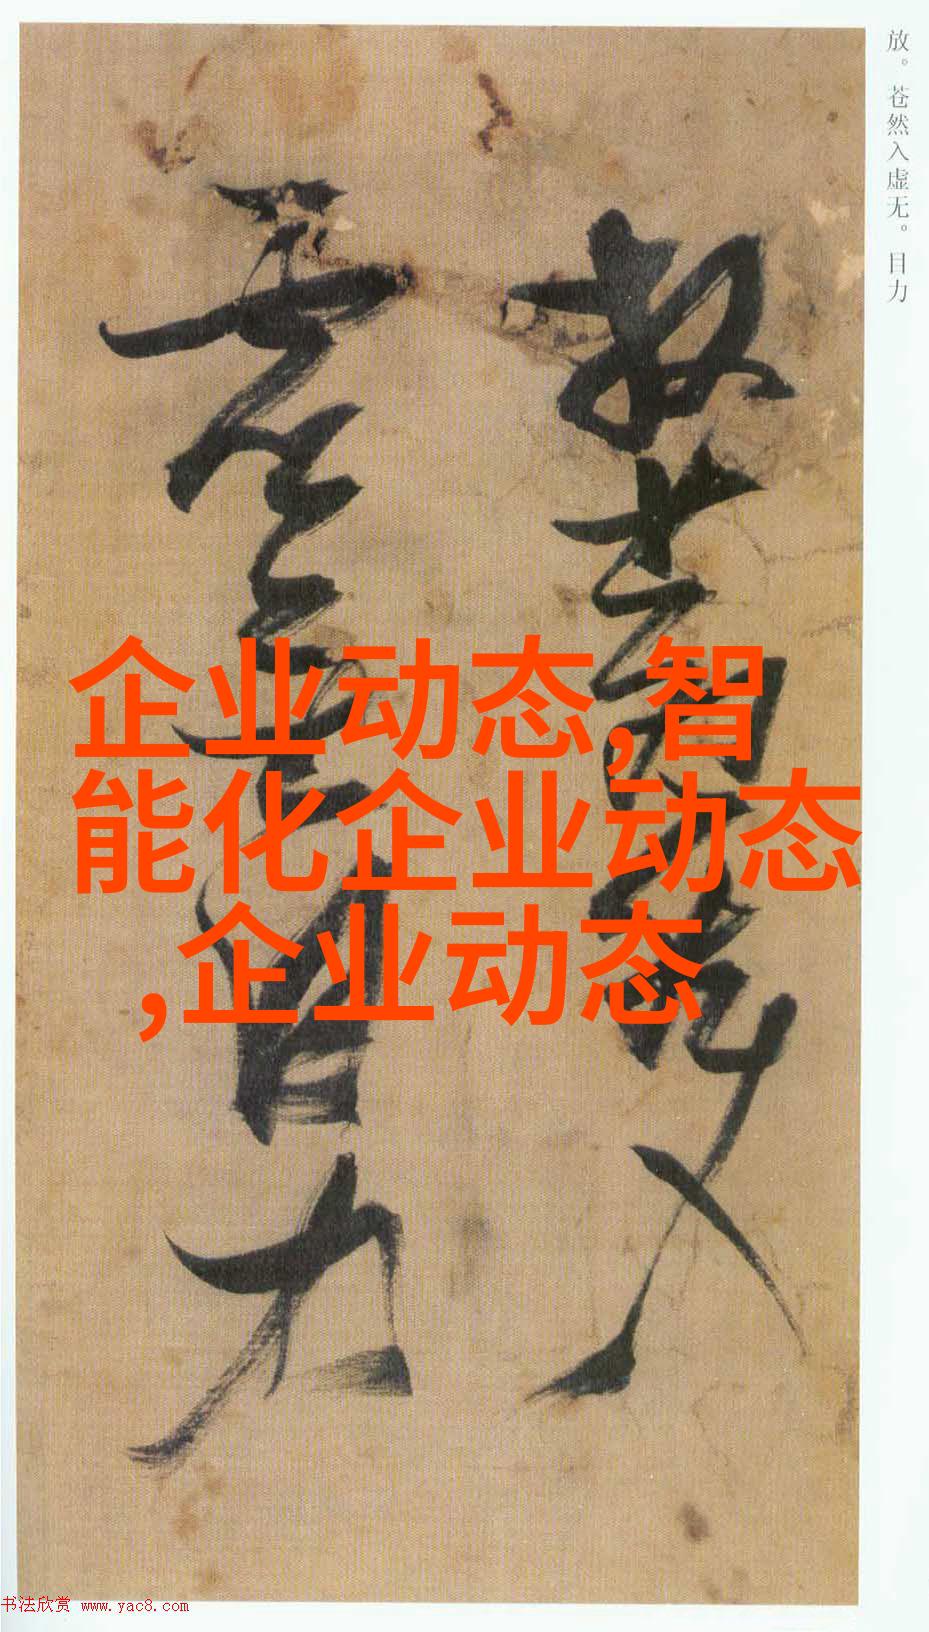 放。苍然入虚无。目力
放苍然入
虚无目力
企业动态,智
能化企业动态
,企业动态
书法欣赏 www.yac8.com